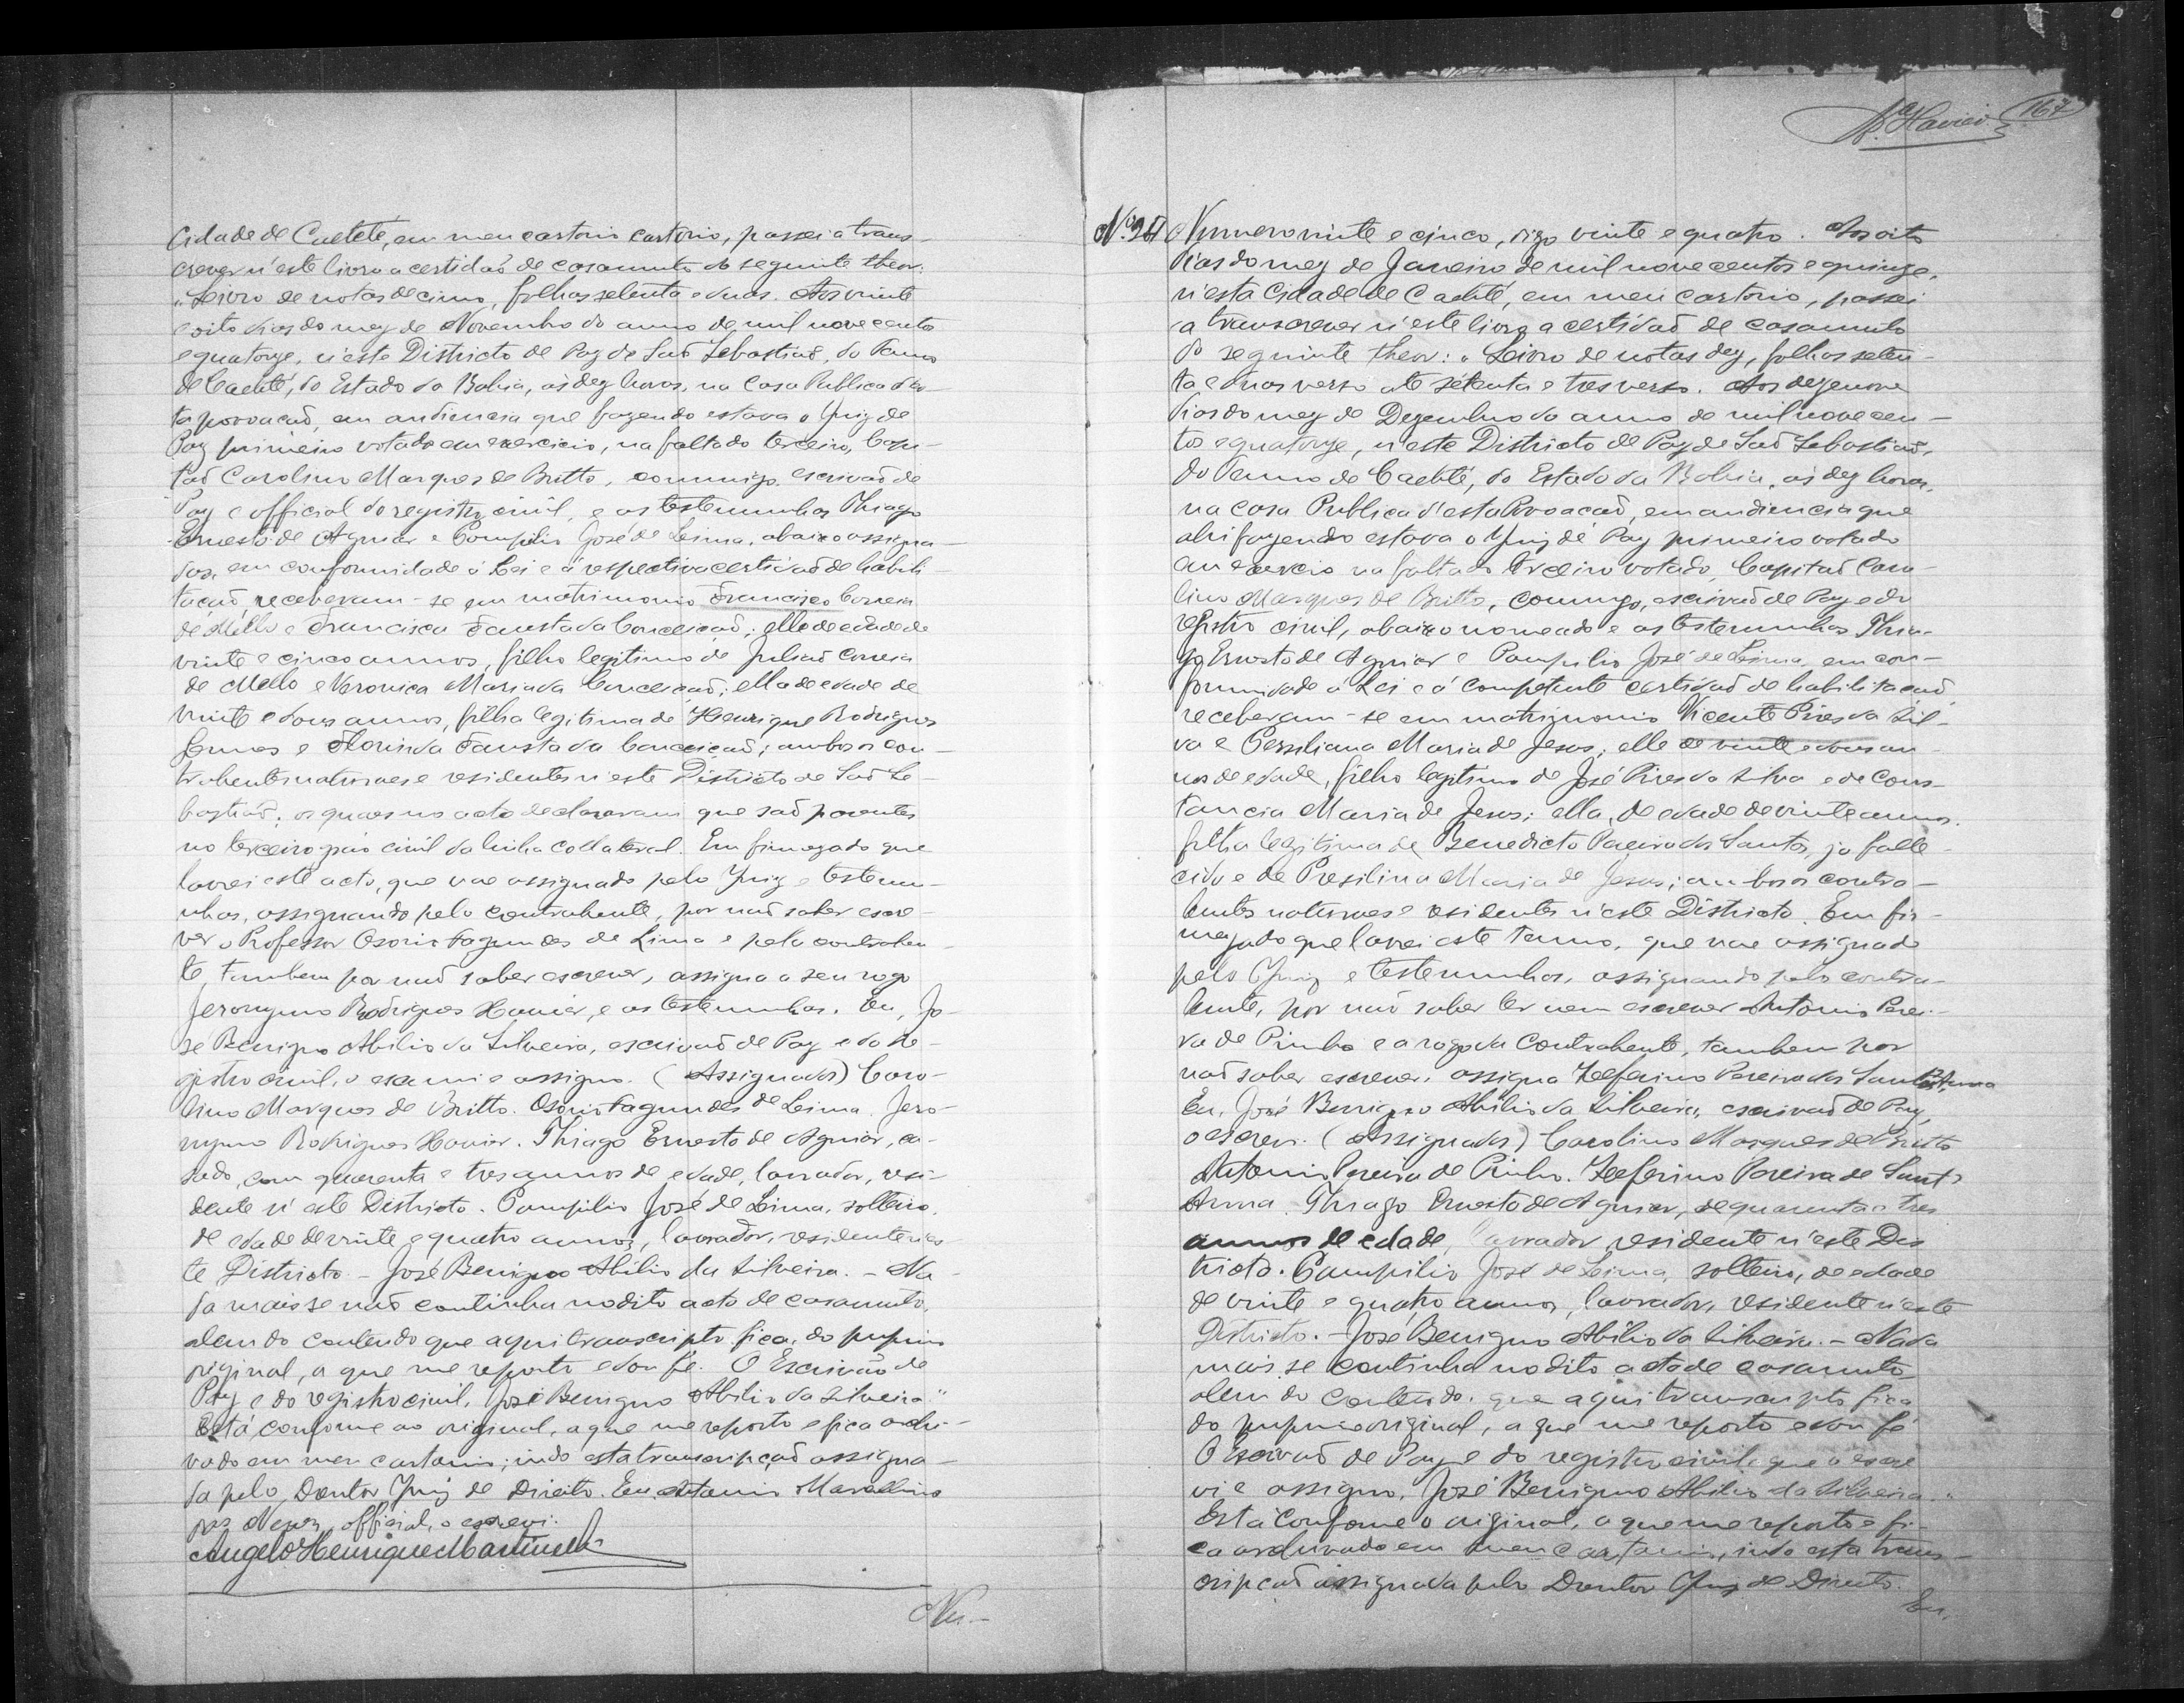 Cidade de Caeteté, em meu cartorio cartorio, passei a trans-
crever n'este livro a certidaõ de casamento do seguinte theor:
"Leivro de notas decimo, folhas setenta e duas. Aos vinte
e oito dias do mez de Novembro do anno de mil nove centos
e quatorze, n'este Districto de Paz de Saõ Sebastiaõ, do Termo
de Caeteté, do Estado da Bahia, ás dez horas, na Casa Publica des-
ta povoaçaõ, em audiencia que fazendo estava o Juiz de
Paz primeiro votado em exercicio, na falta do terceiro, Capi-
taõ Carolino Marques de Britto, commigo escrivaõ de
Paz e official do registro civil, e as testemunhas Thiago
Ernesto de Aguiar e Pompilio José de Leima, abaixo assigna-
dos, em conformidade á Lei e á respectiva certidaõ de habili-
taçaõ, receberam-se em matrimonio Francisco Correia
de Mello e Francisca Fausta da Conceiçaõ; elle de edade de
vinte e cinco annos, filho legitimo de Juliaõ Correia
de Mello e Veronica Maria da Conceiçaõ; ella de edade de
vinte e dous annos, filha legitima de Henrique Rodrigues
Lemos e Florinda Fausta da Conceiçaõ; ambos os con-
trahentes naturaes e residentes n'este Districto de Saõ Se-
bastiaõ; os quaes no acto declararam que saõ parentes
no terceiro gráo civil da linha collateral. Em firmeza do que
lavrei este acto, que vae assignado pelo Juiz e testemu-
nhas, assignando pelo contrahente, por naõ saber escre-
ver o Professor Osorio Fagundes de Lima e pela contrahen-
te, tambem por naõ saber escrever, assigna a seu rogo
Jeronymo Rodrigues Xavier, e as testemunhas. Eu, Jo-
sé Benigno Abilio da Silveira, escrivaõ de Paz e do Re-
gistro civil, o escrevi e assigno. (Assignados) Caro-
lino Marques de Britto. Osorio Fagundes de Leima. Jero-
nymo Rodrigues Xavier. Thiago Ernesto de Aguiar, ca-
sado, com quarenta e tres annos de edade, lavrador, resi-
dente n'este Districto. Pompilio José de Leima, solteiro,
de edade de vinte e quatro annos, lavrador, residente nes-
te Districto - José Benigno Abilio da Silveira. - Na-
da mais se naõ continha no dito acto de casamento,
alem do contendo que aqui transcripto fica, do proprio
original, a que me reporto e dou fé. O Escrivão de
Paz e do registro civil, José Benigno Abilio da Silveira"
Está conforme ao original, a que me reporto e fica archi-
vado em meu cartorio; indo esta transcripçaõ assigna-
da pelo Doutor Juiz de Direito. Eu Antonio Marcellino
das Neves, official, o escrevi.
Angelo Henrique Martinelli
Nu-
Xavier 167
Nº 24 Numero vinte e cinco, digo vinte e quatro. Aos oito
dias do mez de Janeiro de mil nove centos e quinze,
n'esta Cidade de Caeteté, em meu cartorio, passei
a transcrever n'este livro a certidaõ de casamento
do seguinte theor: "Leivro de notas dez, folhas seten-
ta e duas verso até setenta e tres verso. Aos dezenove
dias do mez de Dezembro do anno de mil nove cen-
tos e quatorze, n'este Districto de Paz de Saõ Sebastiaõ,
do Termo de Caeteté, do Estado da Bahia, ás dez horas,
na casa Publica d'esta Povoaçaõ, em audiencia que
ahi fazendo estava o Juiz de Paz primeiro votado
em exercicio na falta do terceiro votado, Capitaõ Caro-
lino Marques de Britto, commigo, escrivaõ de Paz e do
registro civil, abaixo nomeado e as testemunhas Thia-
go Ernesto de Aguiar e Pompilio José de Leima, em con-
formidade á Lei e á competente certidaõ de habilitaçaõ
receberam-se em matrimonio Vicente Pires da Sil-
va e Perciliana Maria de Jesus; elle de vinte e dous an-
nos de edade, filho legitimo de José Pires da Silva e de Cons-
tancia Maria de Jesus; ella, de edade de vinte annos,
filha legitima de Benedicto Pereira dos Santos, já falle-
cido e de Presilina Maria de Jesus; ambos os contra-
hentes naturaes e residentes n'este Districto. Em fir-
meza do que lavrei este termo, que vae assignado
pelo Juiz e testemunhas, assignando pelo contra-
hente, por naõ saber ler nem escrever Antonio Perei-
ra de Pinho e a rogo da Contrahente, tambem por
naõ saber escrever, assigna Zeferino Pereira de Sant'Anna
Eu, José Benigno Abilio da Silveira, escrivaõ de Paz,
o escrevi. (Assignados) Carolino Marques de Britto
Antonio Pereira de Pinho. Zeferino Pereira de Sant'
Anna. Thiago Ernesto de Aguiar, de quarenta e tres
annos de edade, lavrador, residente n'este Dis
tricto. Pompilio José de Leima, solteiro, de edade
de vinte e quatro annos, lavrador, residente n'este
Districto. - José Benigno Abilio da Silveira. - Nada
mais se continha no dito acto de casamento
alem do contendo, que aqui transcripto fica
do proprio original, a que me reporto e dou fé
O Escrivaõ de Paz e do registro civil, que o escre
vi e assigno, José Benigno Abilio da Silveira."
Está conforme o original, a que me reporto e fi-
ca archivado em meu cartorio, indo esta trans-
cripçaõ assignada pelo Doutor Juiz de Direito.
Eu,